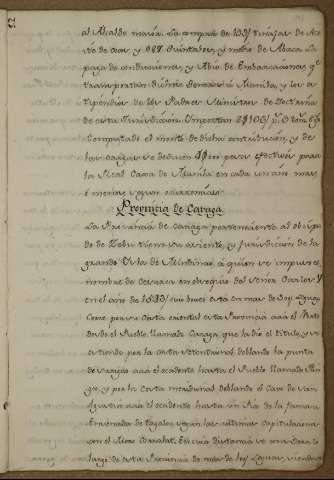 al Alcalde maior. La compra de 135 tinajas de Acei
te de coco, y 987 quintales, y medio de Abaca. La
paga de conducciones, y Abio de Embarcaciones, qe
transportan dichos generos a Manila, y los es
tipendios de los Padres Ministros de Doctrina
de esta Jurisdiccion. Importan
Computado el monto de dicha contribucion, y de
las cargas se deducen pesos efectivos para
la Real Caxa de Manila en cada un año mas,
ó menos segun
Provincia de Caraga
La Provincia de Caraga perteneciente al obispa
do de Zebu tiene su asiento, y jurisdicion de la
grande Isla de Mindanao á quien se impuso
nombre de Cesarea en obsequio del Señor Carlos V
en el año de
Corre por su Costa oriental esta Provincia acia el Norte
desde el Pueblo llamado Caraga, que la dio el titulo, y vi
niendo por la costa setentrional doblando la punta
de Surigao acia el ocidente hasta el Pueblo llamado
y por la Costa meridional doblando el Cavo de San
Agustin acia el ocidente hasta un Rio de la famosa
Ensenada de Tagaloc segun las ultimas Capitulaciones
con el Moro Corralat. En cuia distancia se considera la
largo de esta Provincia de mas de leguas, viendo